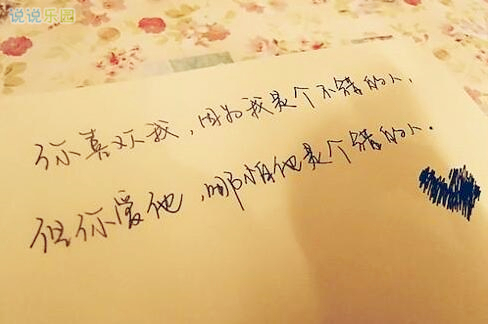 说说乐园
你喜欢我，因为我是个不错的人，
但你爱他，哪怕他是个错的人。